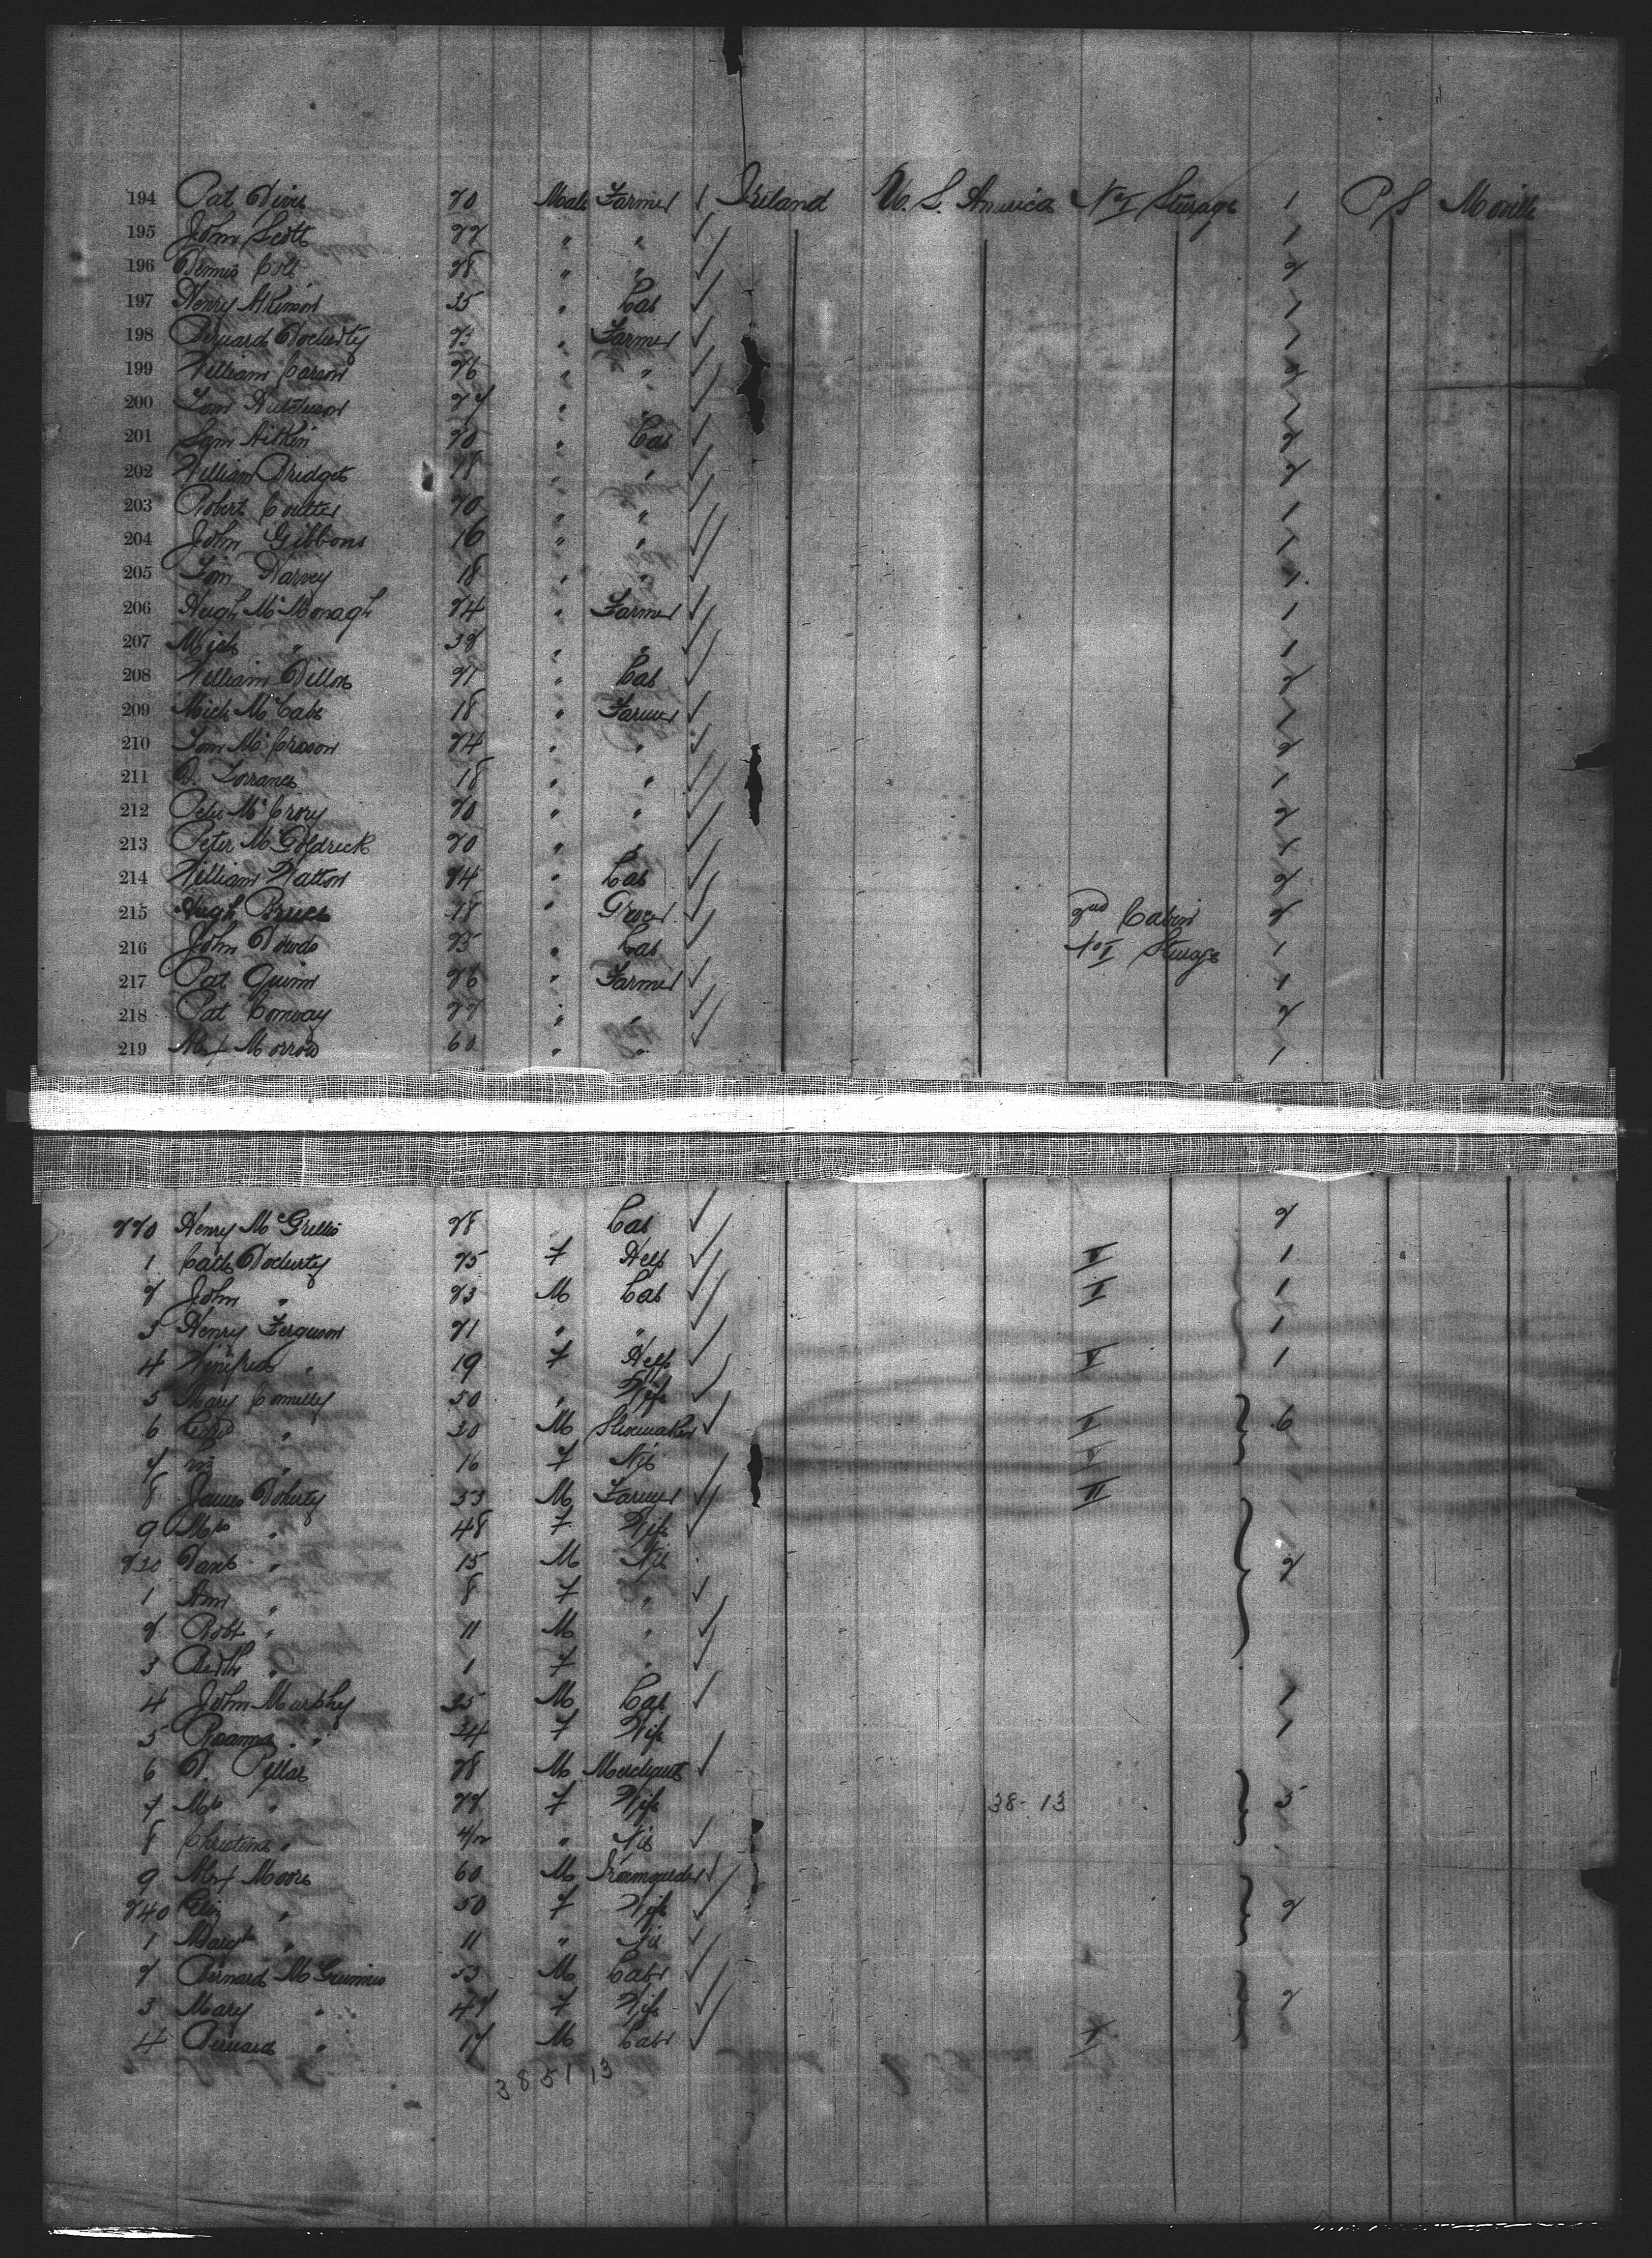 194 Pat Diver 20 Male Farmer Ireland U. S. America No I Steerage 1 P S Moville
195 John Scott 22 " " 1
196 Dennis Colt 28 " " 2
197 Henry Atkinson 35 " Lab 1
198 Bernard Docherty 23 " Farmer 1
199 William Carson 26 " " 2
200 Tom Hutcheson 27 " "
201 Sam Aitken 20 " Lab 2
202 William Bridget 18 " " 2
203 Robert Coulter 20 " " 1
204 John Gibbons 16 " " 1
205 Jim Harvey 18 " " 1
206 Hugh McMonagh 24 " Farmer 1
207 Mich " 32 " " 1
208 William Dillon 21 " Lab 2
209 Mich McCabe 18 " Farmer
210 Tom McCrason 24 " " 2
211 D. Torrance 18 " " 1
212 Peter McCrory 20 " " 2
213 Peter McGoldrick 20 " "
214 William Watton 24 " Lab 2
215 Hugh Price 18 " Grocer 2nd Cabin 2
216 John Dowds 25 " Lab No I Steerage 1
217 Pat Quinn 26 " Farmer 1
218 Pat Conway 22 " " 2
219 Alex Morrow 60 " " 1
220 Henry McGrellis 28 Lab 2
1 Cath Docherty 25 F Help I 1
2 John " 23 M Lab I 1
3 Henry Ferguson 21 " " 1
4 Winifred " 19 F Help I 1
5 Mary Connelly 50 " Wife
6 Edwd " 30 M Shoemaker I 6
7 " 16 F Nil I
8 James Doherty 53 M Farmer II
9 Mrs " 48 F Wife
230 Danl " 15 M Nil 2
1 Ann " 8 F "
2 Robt " 11 M "
3 " 1 F "
4 John Murphy 35 M Lab 1
5 Roanna " 34 F Wife 1
6 D. Pillar 28 M Merchant
7 Mrs " 22 F Wife 38-13 3
8 Christina " 4/12 " Nil
9 Alex Moore 60 M Ironmoulder
240 Eliz " 50 F Wife 2
1 Margt " 11 " Nil
2 Bernard McGuinnis 53 M Labr
3 Mary " 42 F Wife 2
4 Bernard " 17 M Labr I
3851 13